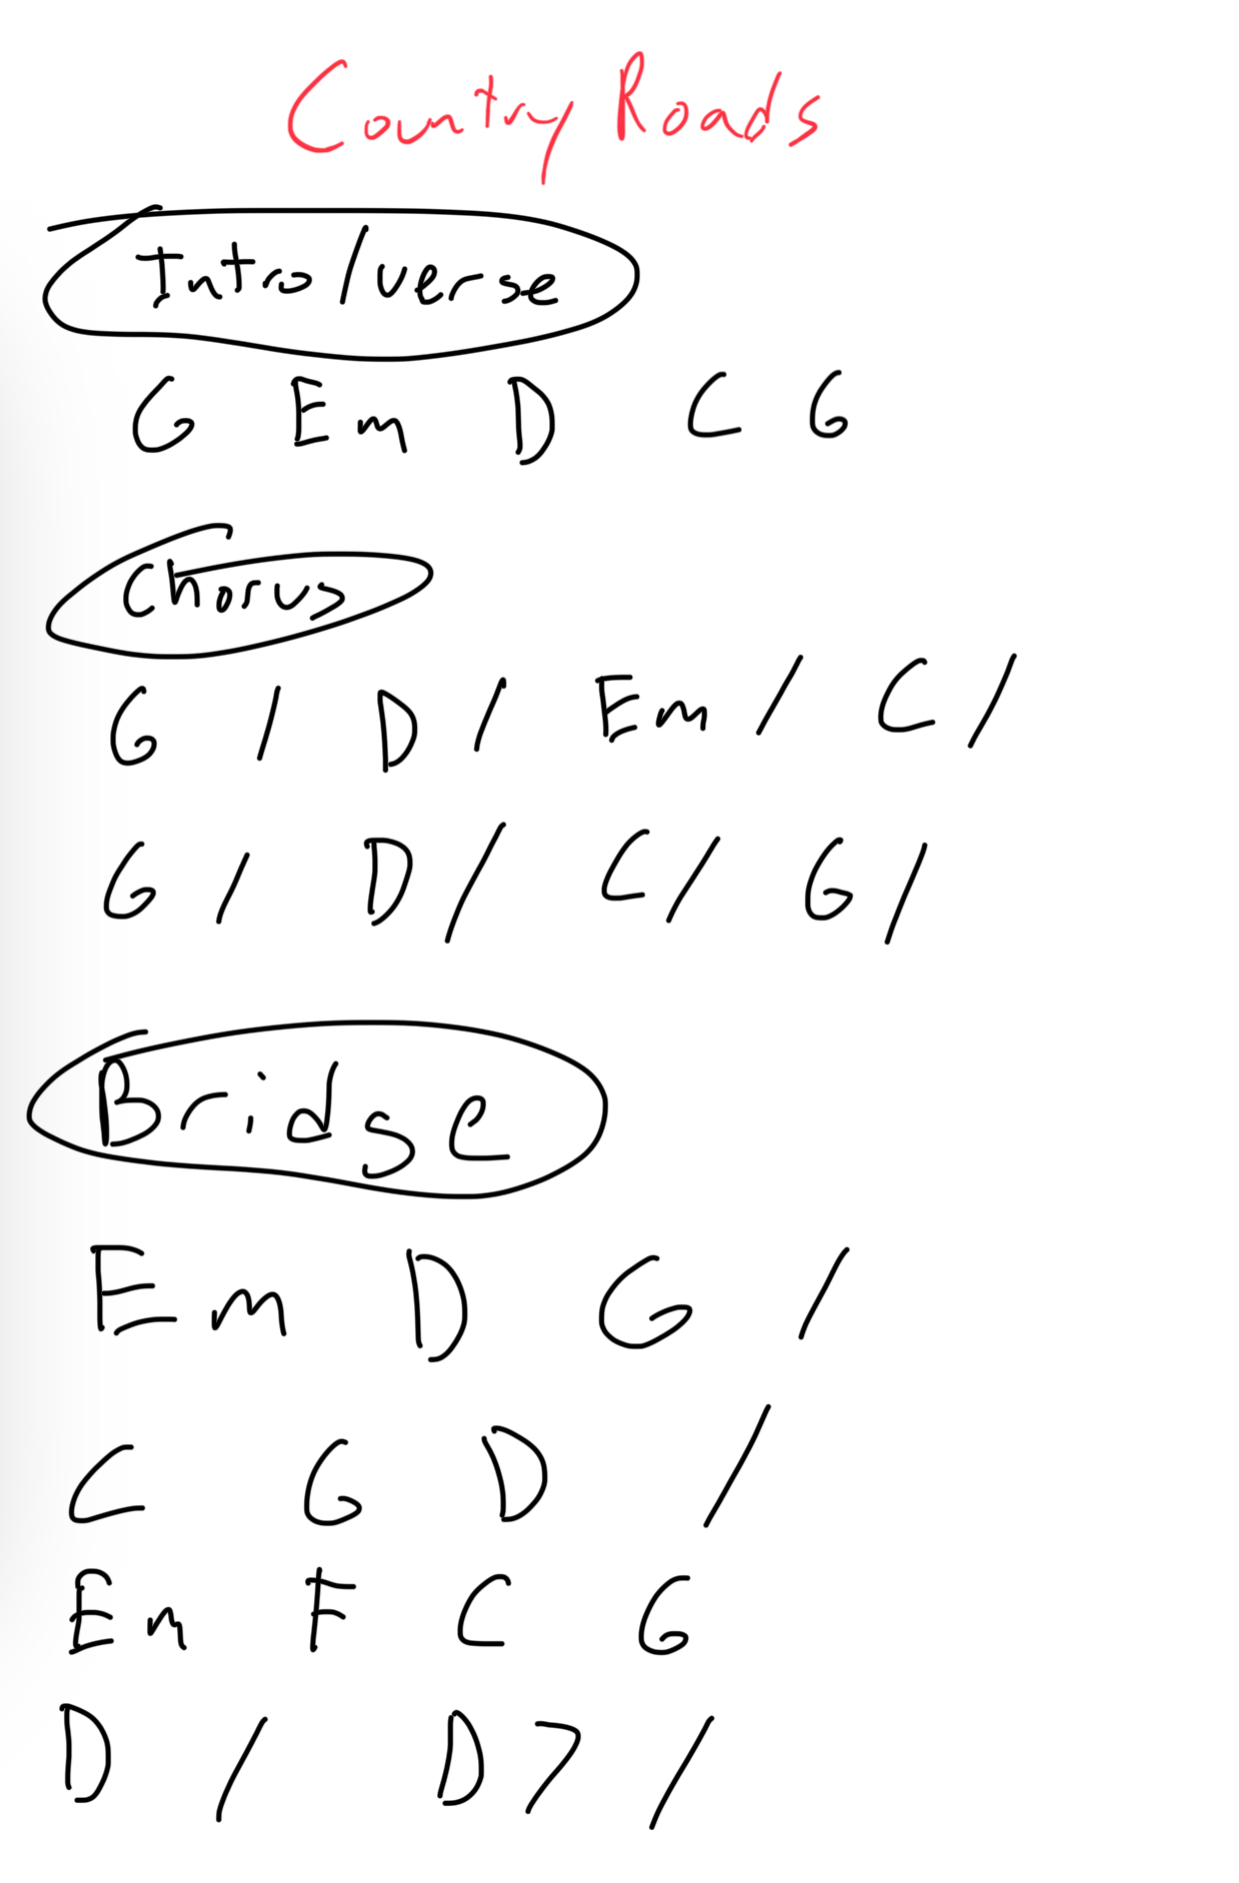 Country Roads
Intro/verse
G Em D C G
Chorus
G / D / Em / C /
G / D / C / G /
Bridge
Em D G /
C G D /
Em F C G
D / D7 /